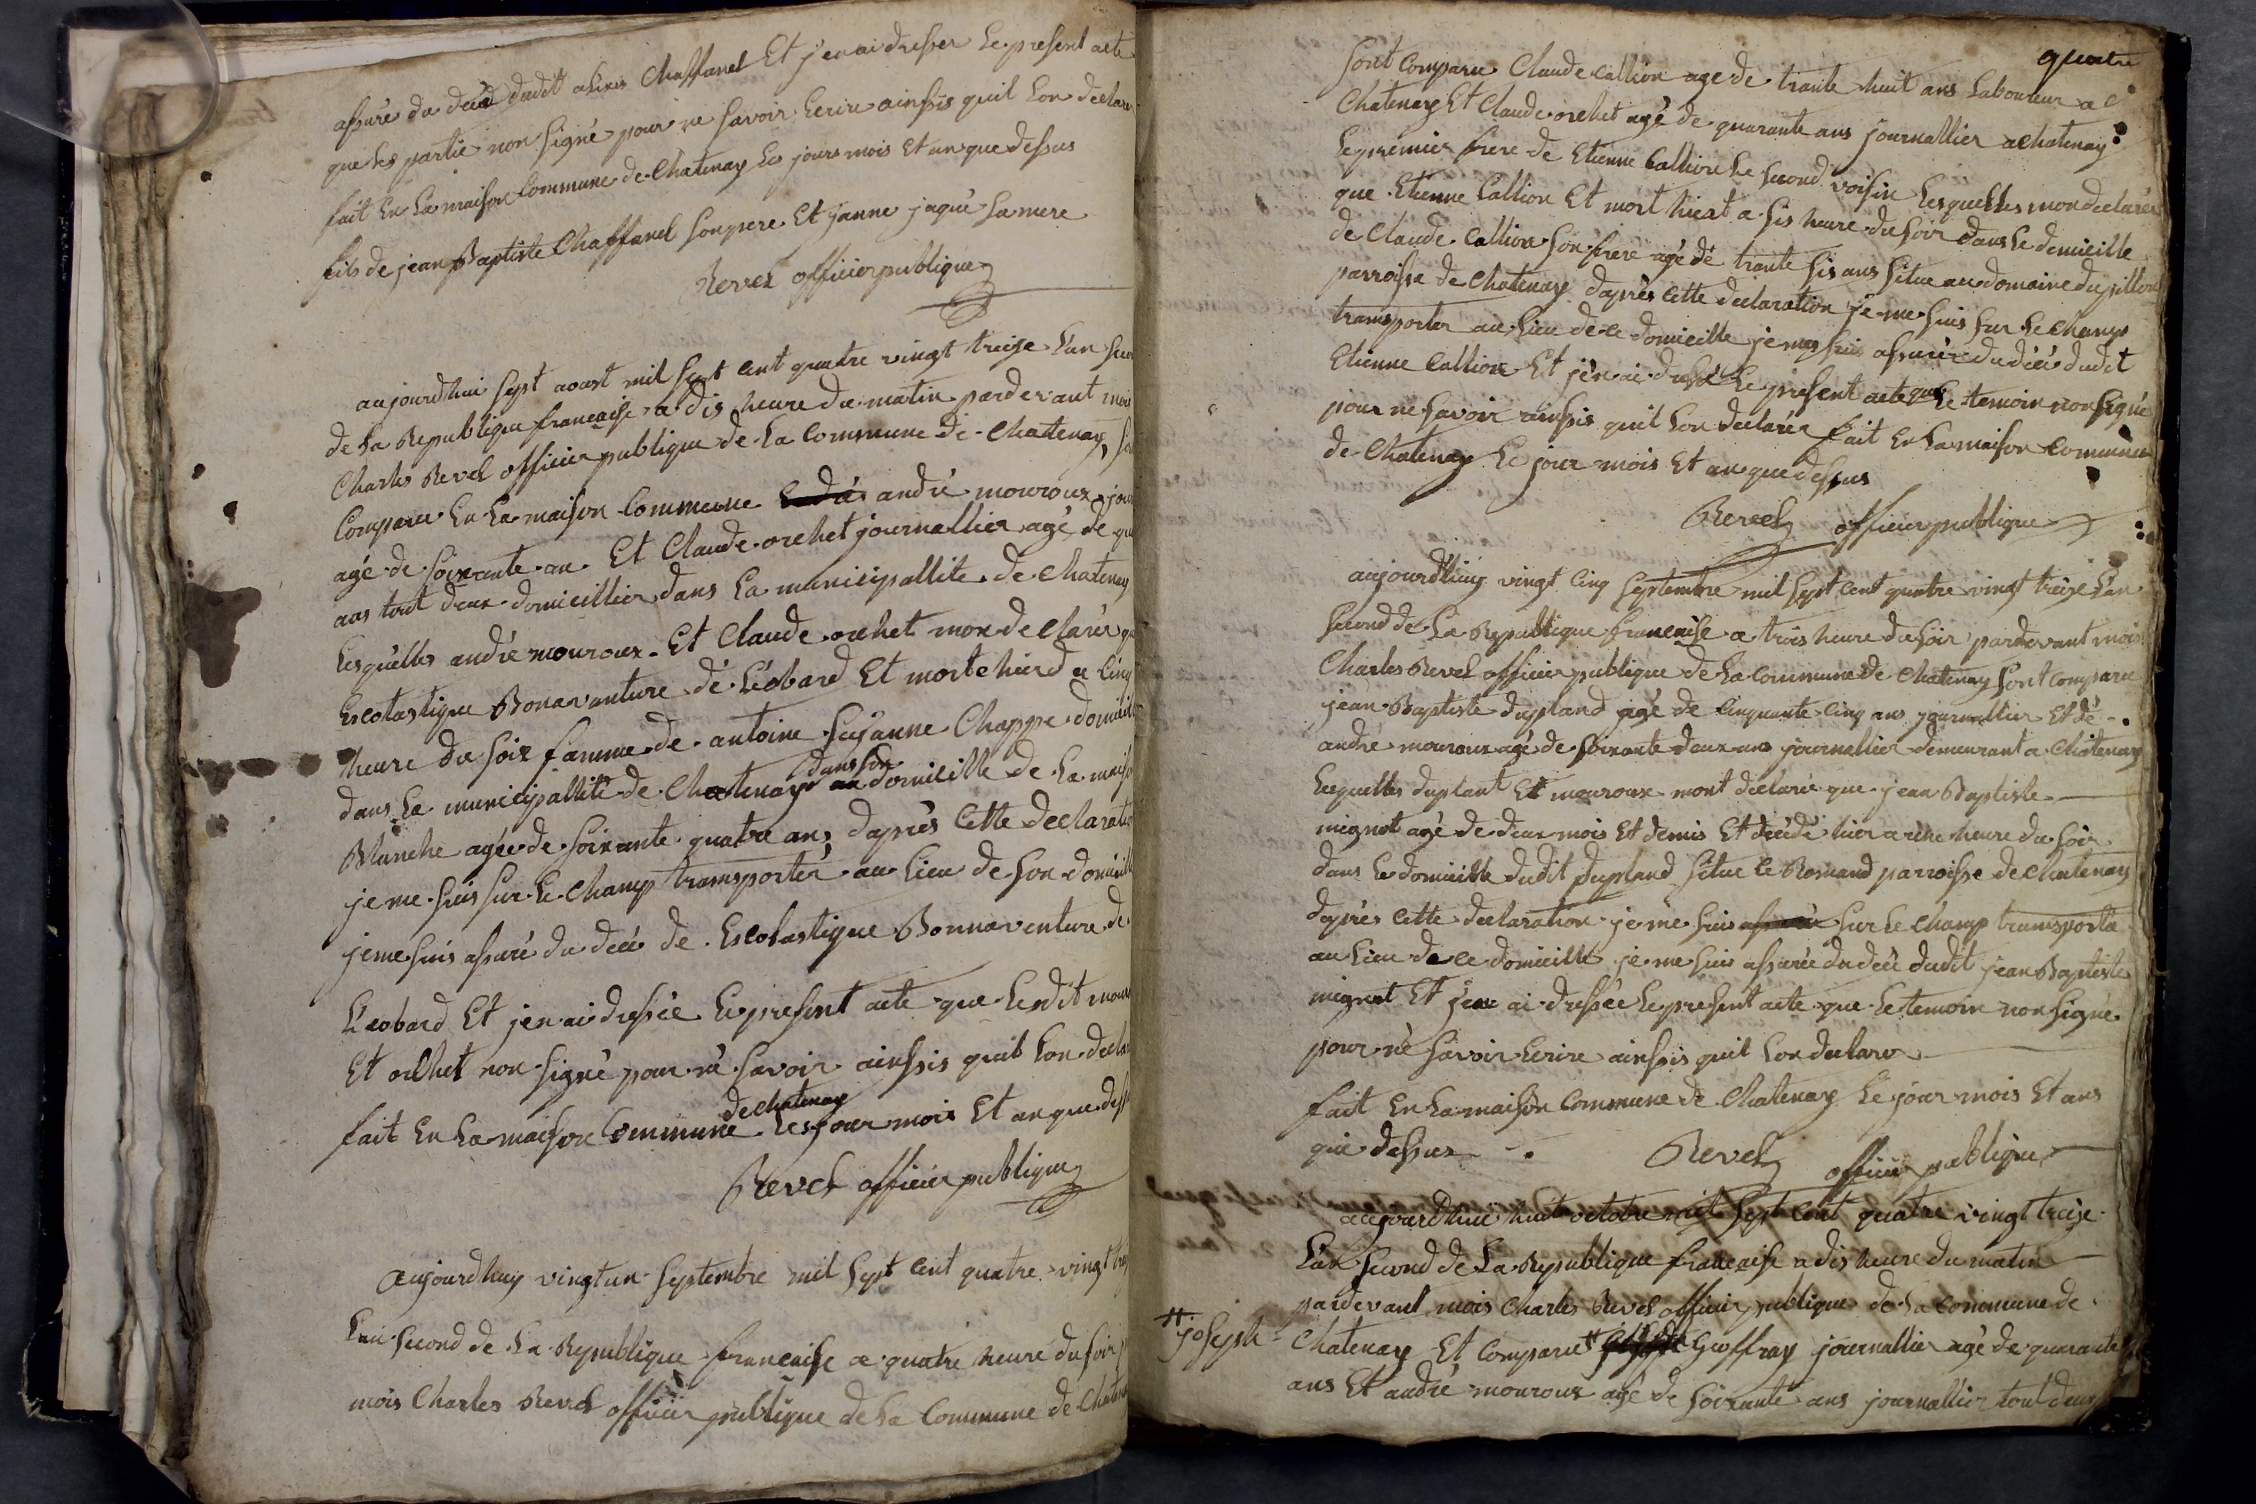 assuré du décé dudit Chaffanel Et j'en ai dresser le present acte
que les partie non signé pour ne savoir Ecrire ainssis quil lon declare
fait En La maison Commune de Chatenay Les jours mois Et an que dessus
fils de jean Baptiste Chaffanel son pere Et janne jaque sa mere
Revel officier publique
aujourdhui sept aoust mil sept cent quatre vingt treize L'an
de La Republique francaise a dis heure du matin pardevant moi
Charles Revel officier publique de La Commune de Chatenay
Comparu En La maison Commune andré mouroux
agé de soixante an Et Claude orchet journallier agé de
ans tout deux domicillier dans La municipallite de Chatenay
Lesquelles andré mouroux Et Claude orchet mon declarer
Escolastique Bonavanture de Léobard Et morte hierd a Cinq
heure du soir famme de antoine Suzanne Chappe
dans La municipallité de Chatenay dans son domicille de La
Blanche agée de soixante quatre ans, daprès Cette declaration
je me suis sur Le Champ transporter au Lieu de son domicille
je me suis assuré du décé de Escolastique Bonnaventure de
Léobard Et jen ai dressée Le present acte que Lesdit
Et orchet non signé pour ne savoir ainssis quil lon
fait En La maison Commune de chatenay Les jour mois Et an que
Revel officier publique
aujourdhuy vingt un septembre mil sept cent quatre vingt
Lan second de La Republique francaise a quatre heure du soir
mois Charles Revel officier publique de La Commune de
quatre
sont Comparu Claude Callion age de trante huit ans Laboureur a
Chatenay Et Claude orchet agé de quarante ans journallier a Chatenay
Le premier frere de Etienne Callion Le second voisin Lesquelles mon declarér
que Etienne Callion Et mort hierd a sis heure du soir dans Le domicille
de Claude Callion son frere agé de trante sis ans situe au domaine du
parroisse de Chatenay daprès Cette declaration je me suis sur Le Champ
transporter au Lieu de ce domicille je me suis assurér du décé dudit
Etienne Callion Et j'en ai dressé Le present acte que Le temoin non signé
pour ne savoir ainssis quil lon declarér fait En La maison Commune
de Chatenay Le jour mois Et an que dessus
Revel officier publique
aujourdhuy vingt cinq septembre mil sept cent quatre vingt treize Lan
second de La Republique francaise a trois heure du soir pardevant mois
Charles Revel officier publique de La Commune de Chatenay sont Comparu
jean Baptiste dupland agé de Cinquante Cinq ans journallier Et de
andré mouroux agé de soixante deux ans journallier demeurant a Chatenay
Lequelles duplant Et mouroux mont declarée que jean Baptiste
mignot agé de deux mois Et demis Et décédé hier a heure du soir
dans Le domicille dudit dupland situe Le parroisse de Chatenay
daprès Cette declaration je me suis sur Le Champ transporté
au Lieu de Ce domicille je me suis assurée du décé dudit jean Baptiste
mignot Et j'en ai dressée Le present acte que Le temoin non signé
pour ne savoir Ecrire ainssis quil lon declare
fait En La maison Commune de Chatenay Le jour mois Et ans
que dessus
Revel officier publique
aujourdhui huit octobre mil sept cent quatre vingt treize
L'an second de La Republique francaise a dis heure du matin
pardevant mois Charles Revel officier publique de La Commune de
joseph
Chatenay Et Comparu Geoffray journallier agé de quarante
ans Et andré mouroux agé de soixante ans journallier tout deux